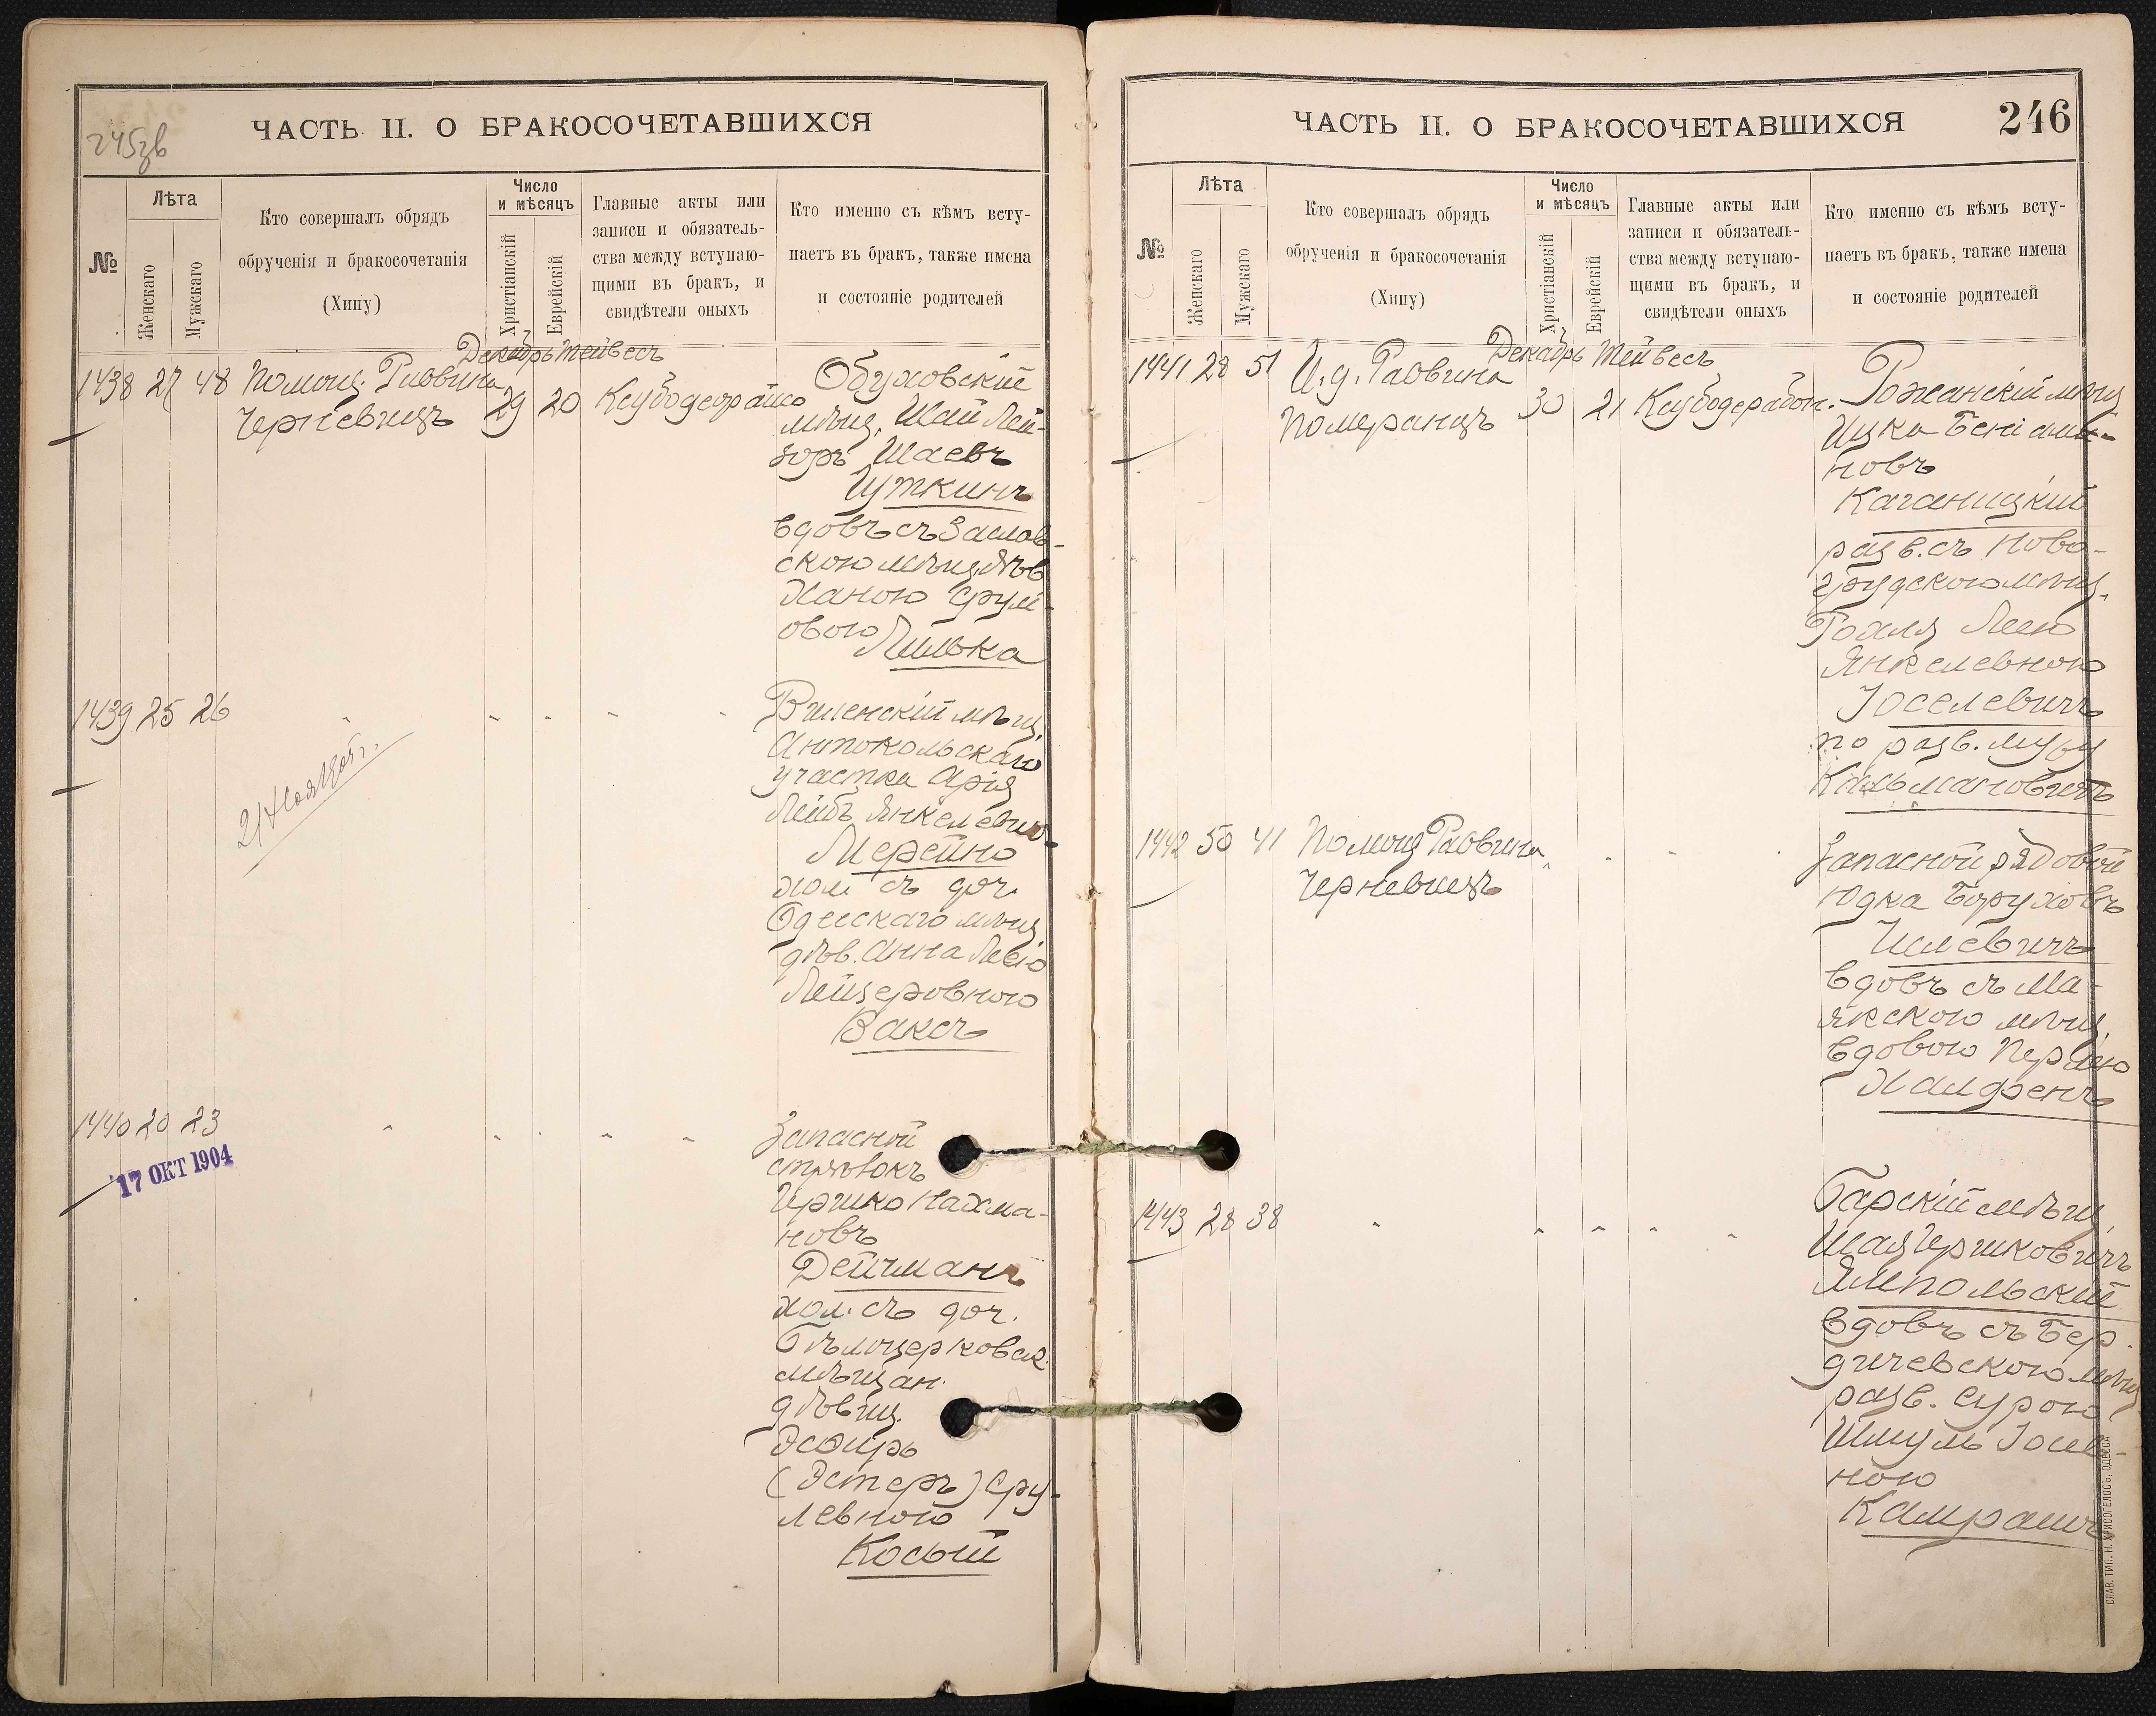 245зв
ЧАСТЬ II. О БРАКОСОЧЕТАВШИХСЯ
№
Лѣта
Женскаго
Мужскаго
Кто совершалъ обрядъ
обрученія и бракосочетанія
(Хипу)
Число
и мѣсяцъ
Христіанскій
Еврейскій
Главные акты или
записи и обязатель-
ства между вступаю-
щими въ бракъ, и
свидѣтели оныхъ
Кто именно съ кѣмъ всту-
паетъ въ бракъ, также имена
и состояніе родителей
Декабрь Тейвесъ
1438 27 48 Помощ. Раввина
Черневицъ
29 20
Обуховскій
мѣщ. Шай Лей-
зоръ Шаевъ
Гуткинъ
вдовъ съ Заслав-
скою мѣщ. дѣв
Ханою Срул-
овою
Пилька
1439 25 26
21 Ноя
Виленскій мѣщ.
Антокольскаго
участка Арія
Лейбъ Янкелевич-
Мерейно
хол съ доч.
Одесскаго мѣщ
дѣв. Анна Песіо
Лейзеровною
Ваксъ
1440 20 23
17 ОКТ 1904
Запасной
стрѣлокъ
Гершко Нахма-
новъ
Дейчманъ
хол. съ доч.
Бѣлоцерковск.
мѣщан.
дѣвиц.
Эсфирь
(Эстеръ) Сру-
левною
Косый
ЧАСТЬ II. О БРАКОСОЧЕТАВШИХСЯ
246
№
Лѣта
Женскаго
Мужскаго
Кто совершалъ обрядъ
обрученія и бракосочетанія
(Хипу)
Число
и мѣсяцъ
Христіанскій
Еврейскій
Главные акты или
записи и обязатель-
ства между вступаю-
щими въ бракъ, и
свидѣтели оныхъ
Кто именно съ кѣмъ всту-
паетъ въ бракъ, также имена
и состояніе родителей
Декабрь Тейвесъ
1441 28 51 И. д. Раввина
Померанцъ
30 21
Рожанскій мѣщ
Ицка Беніами-
новъ
Каганицкій
разв. съ Ново-
грудскою мѣщ.
Рохля Леею
Янкелевною
Іоселевичъ
по разв. мужу
Кальмановичъ
1442 50 41 Помощ Раввина
Черневицъ
Запасной рядовой
Юдка Боруховъ
Ицлевичъ
вдовъ съ Ма-
якскою мѣщ.
вдовою Перлею
Халфенъ
1443 28 38
Барскій мѣщ.
Шая Гершковичъ
Ямпольскій
вдовъ съ Бер-
дичевскою мѣщ
разв. Сурою
Шмуль Іосев-
ною
Камрашъ
СЛАВ. ТИП. Н. ХРИСОГЕЛОСЪ, ОДЕССА